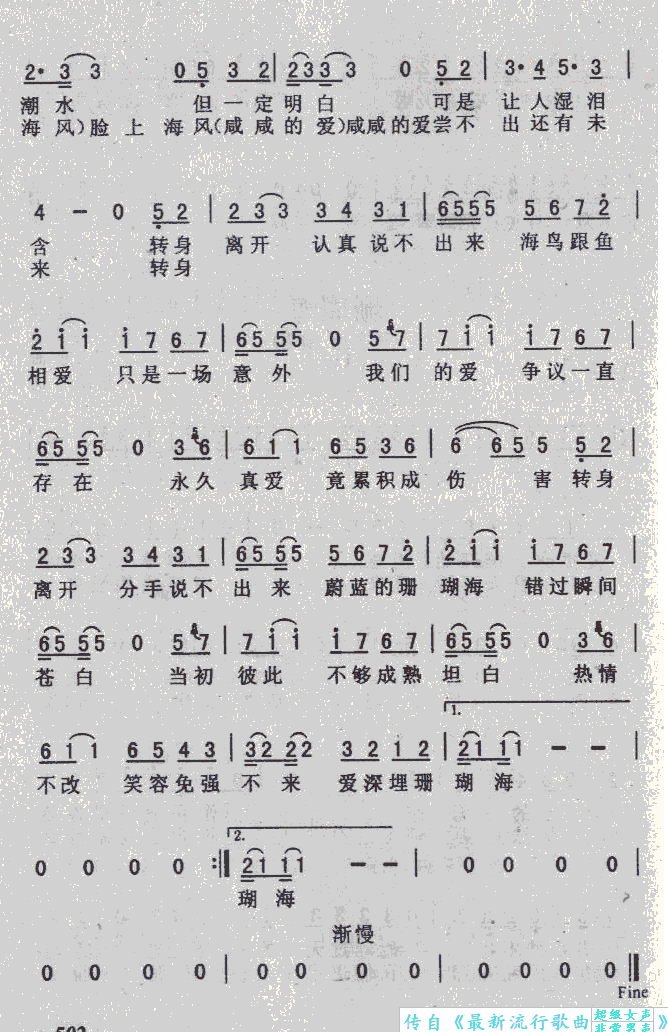 2· 3 3 0 5 3 2 | 2 3 3 3 0 5 2 | 3· 4 5· 3 |
潮水 但一定明白 可是 让人湿泪
海风)脸上 海风(咸咸的爱)咸咸的爱尝不 出还有未
4 － 0 5 2 | 2 3 3 3 4 3 1 | 6 5 5 5 5 6 7 2 |
含 转身 离开 认真说不 出来 海鸟跟鱼
来 转身
2 1 1 1 7 6 7 | 6 5 5 5 0 5 7 | 7 1 1 1 7 6 7 |
相爱 只是一场 意外 我们 的爱 争议一直
6 5 5 5 0 3 6 | 6 1 1 6 5 3 6 | 6 6 5 5 5 2 |
存在 永久 真爱 竟累积成 伤 害 转身
2 3 3 3 4 3 1 | 6 5 5 5 5 6 7 2 | 2 1 1 1 7 6 7
离开 分手说不 出来 蔚蓝的珊 瑚海 错过瞬间
6 5 5 5 0 5 7 | 7 1 1 1 7 6 7 | 1 5 5 5 0 3 6 |
苍白 当初 彼此 不够成熟 坦白 热情
1.
6 1 1 6 5 4 3 | 3 2 2 2 3 2 1 2 | 2 1 1 1 － － |
不改 笑容免强 不来 爱深埋珊 瑚海
2.
0 0 0 0 :‖ 2 1 1 1 － － | 0 0 0 0 |
瑚海
渐慢
0 0 0 0 | 0 0 0 0 | 0 0 0 0 ‖
Fine
传自《最新流行歌曲超级女声非常男声》